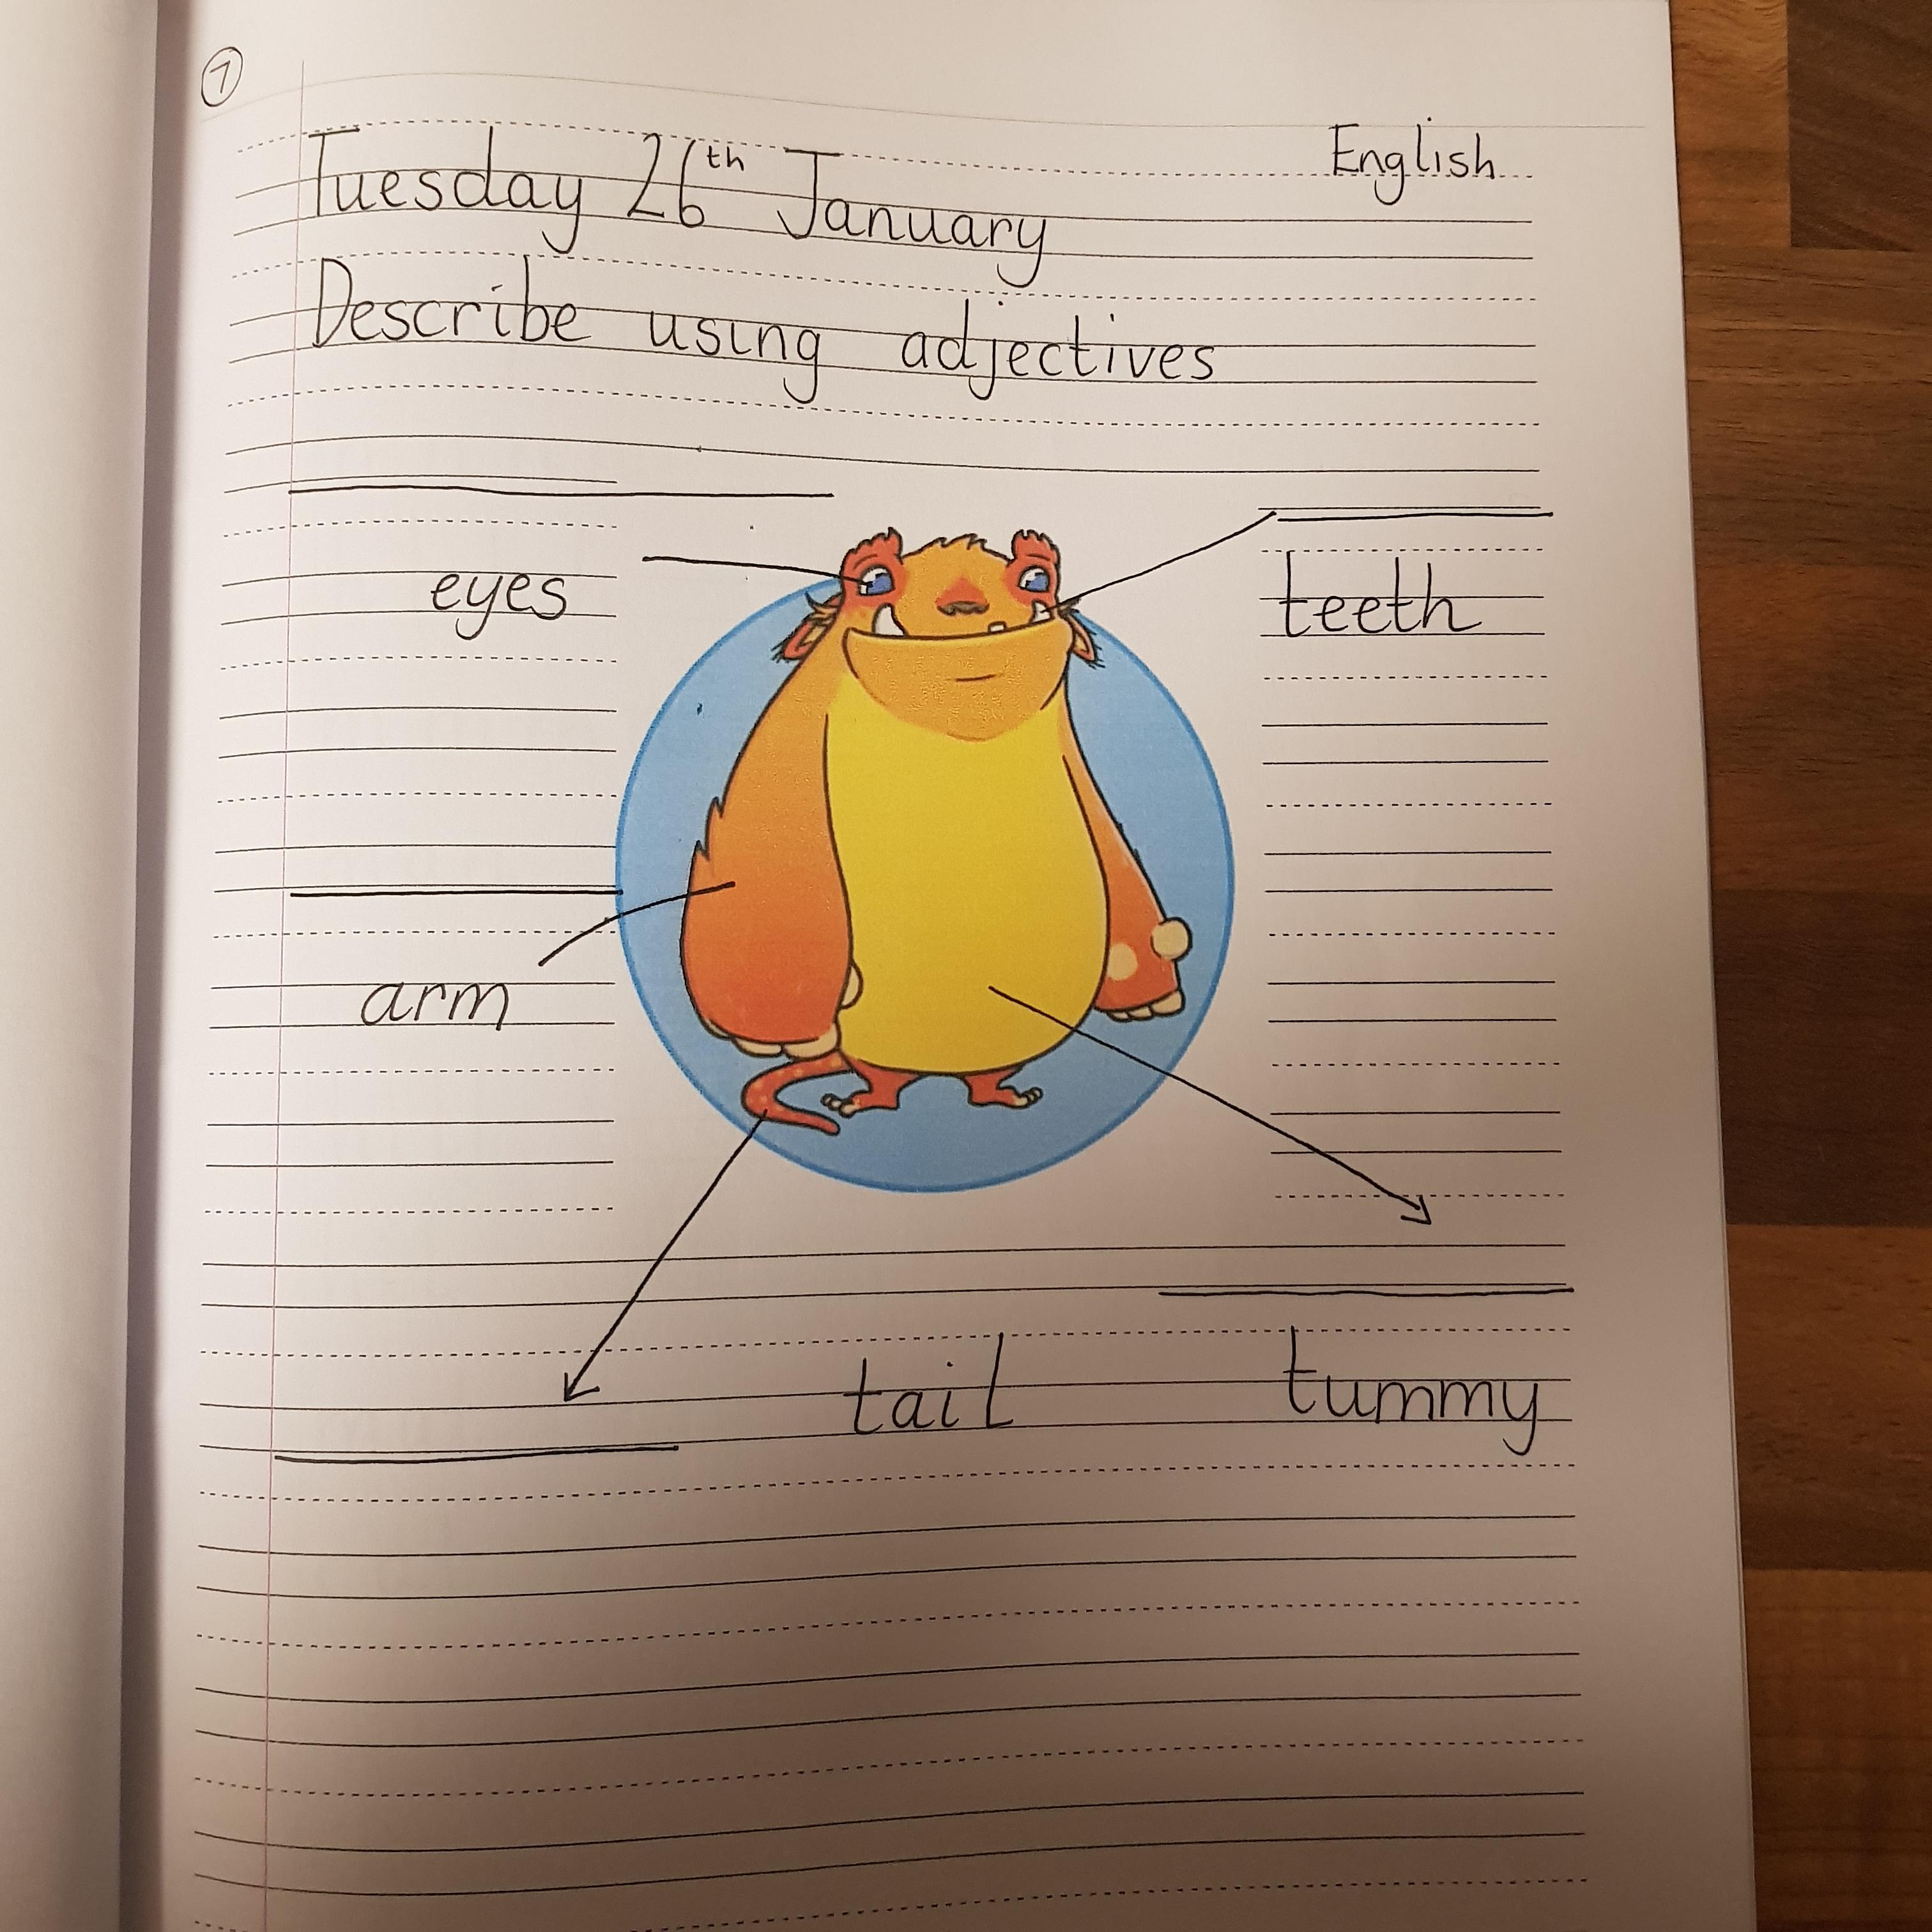 7
Tuesday 26th January
English
Describe using adjectives
eyes
teeth
arm
tail
tummy